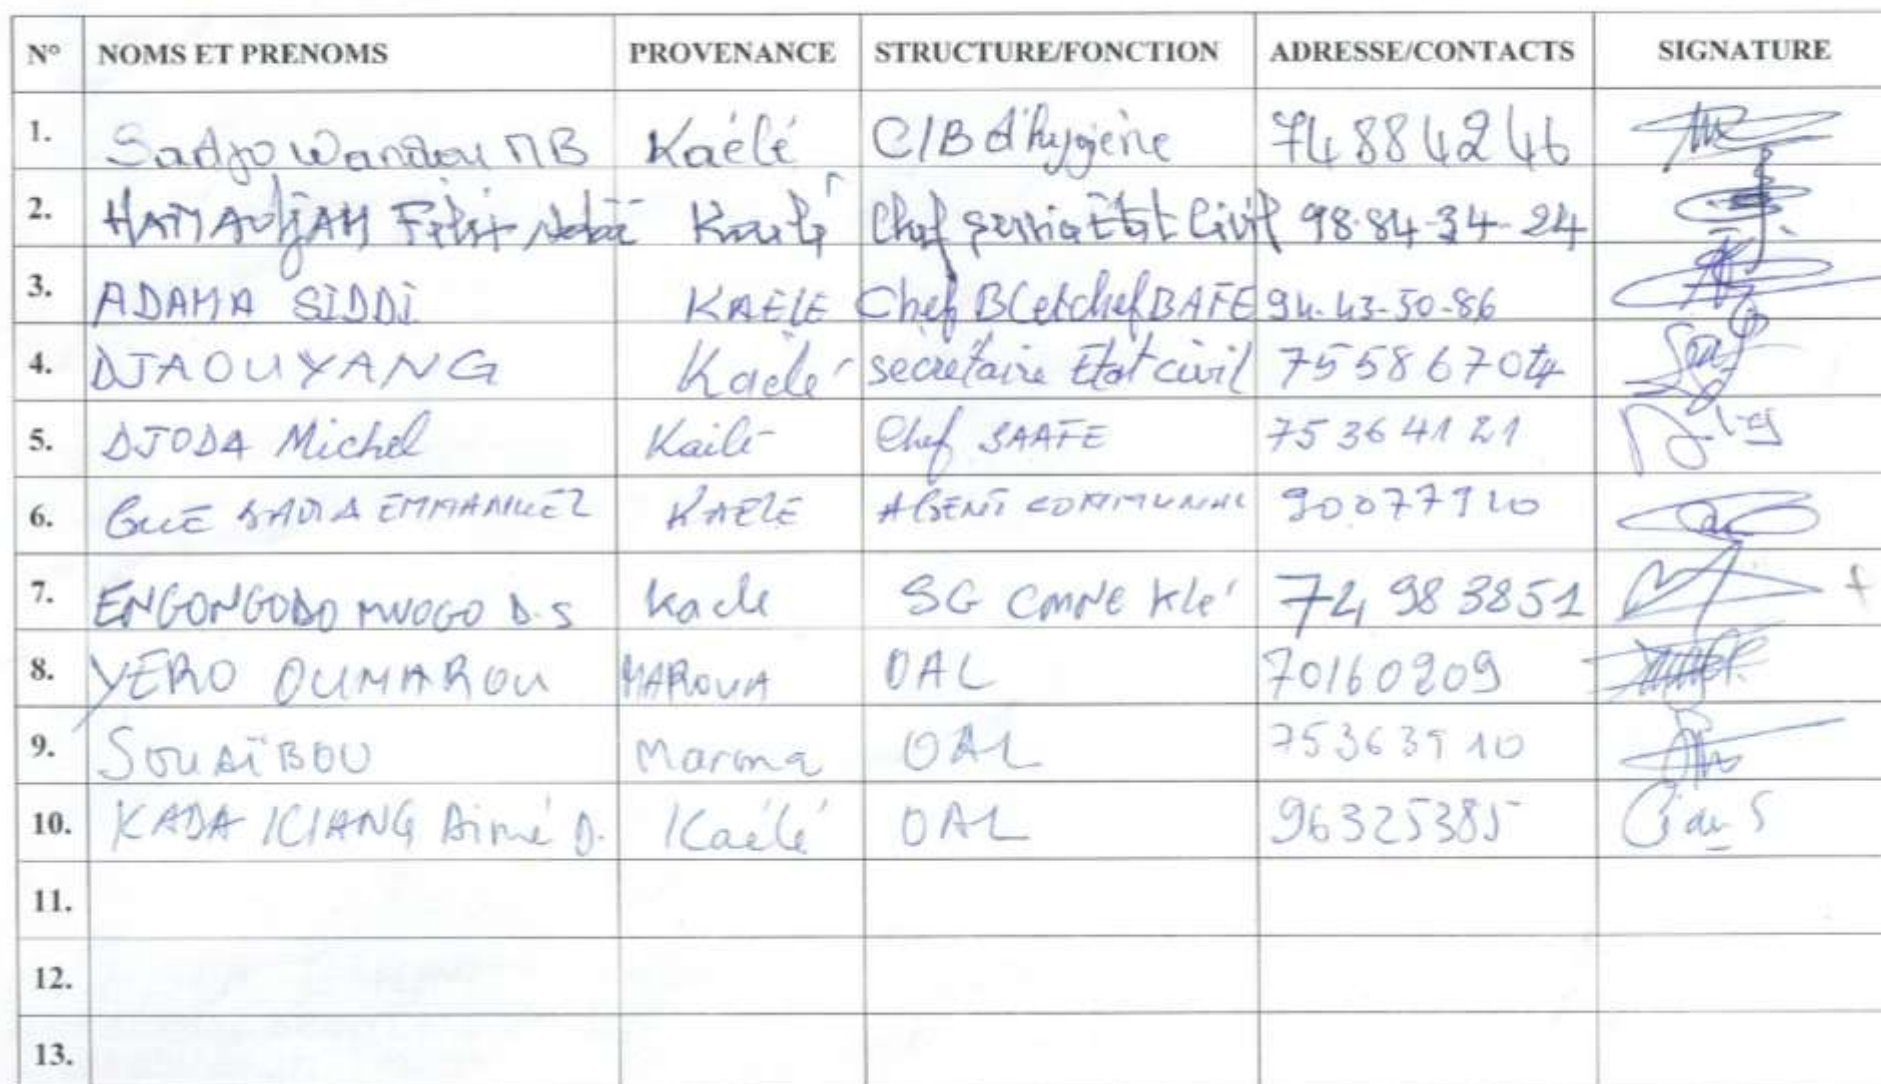 N° NOMS ET PRENOMS PROVENANCE STRUCTURE/FONCTION ADRESSE/CONTACTS SIGNATURE
1. Sadjo Wandou MB Kaélé C/B d'hygiène 74884246
2. HAMADJAM Felix Kaélé Chef service Etat Civil 98-84-34-24
3. ADAMA SIDDI KAELE Chef BC et chef BAFE 94-43-50-86
4. DJAOUYANG Kaélé secrétaire Etat civil 75586704
5. DJODA Michel Kaélé Chef SAAFE 75364121
6. GUE SADIA EMMANUEL KAELE AGENT COMMUNAL
7. ENGONGODO MVOGO D.S Kaele SG CMNE Klé 74983851
8. YERO OUMAROU MAROUA OAL 70160209
9. SOUAÏBOU Maroua OAL 75363910
10. KADA KIANG Aimé D. Kaélé OAL 96325385
11.
12.
13.